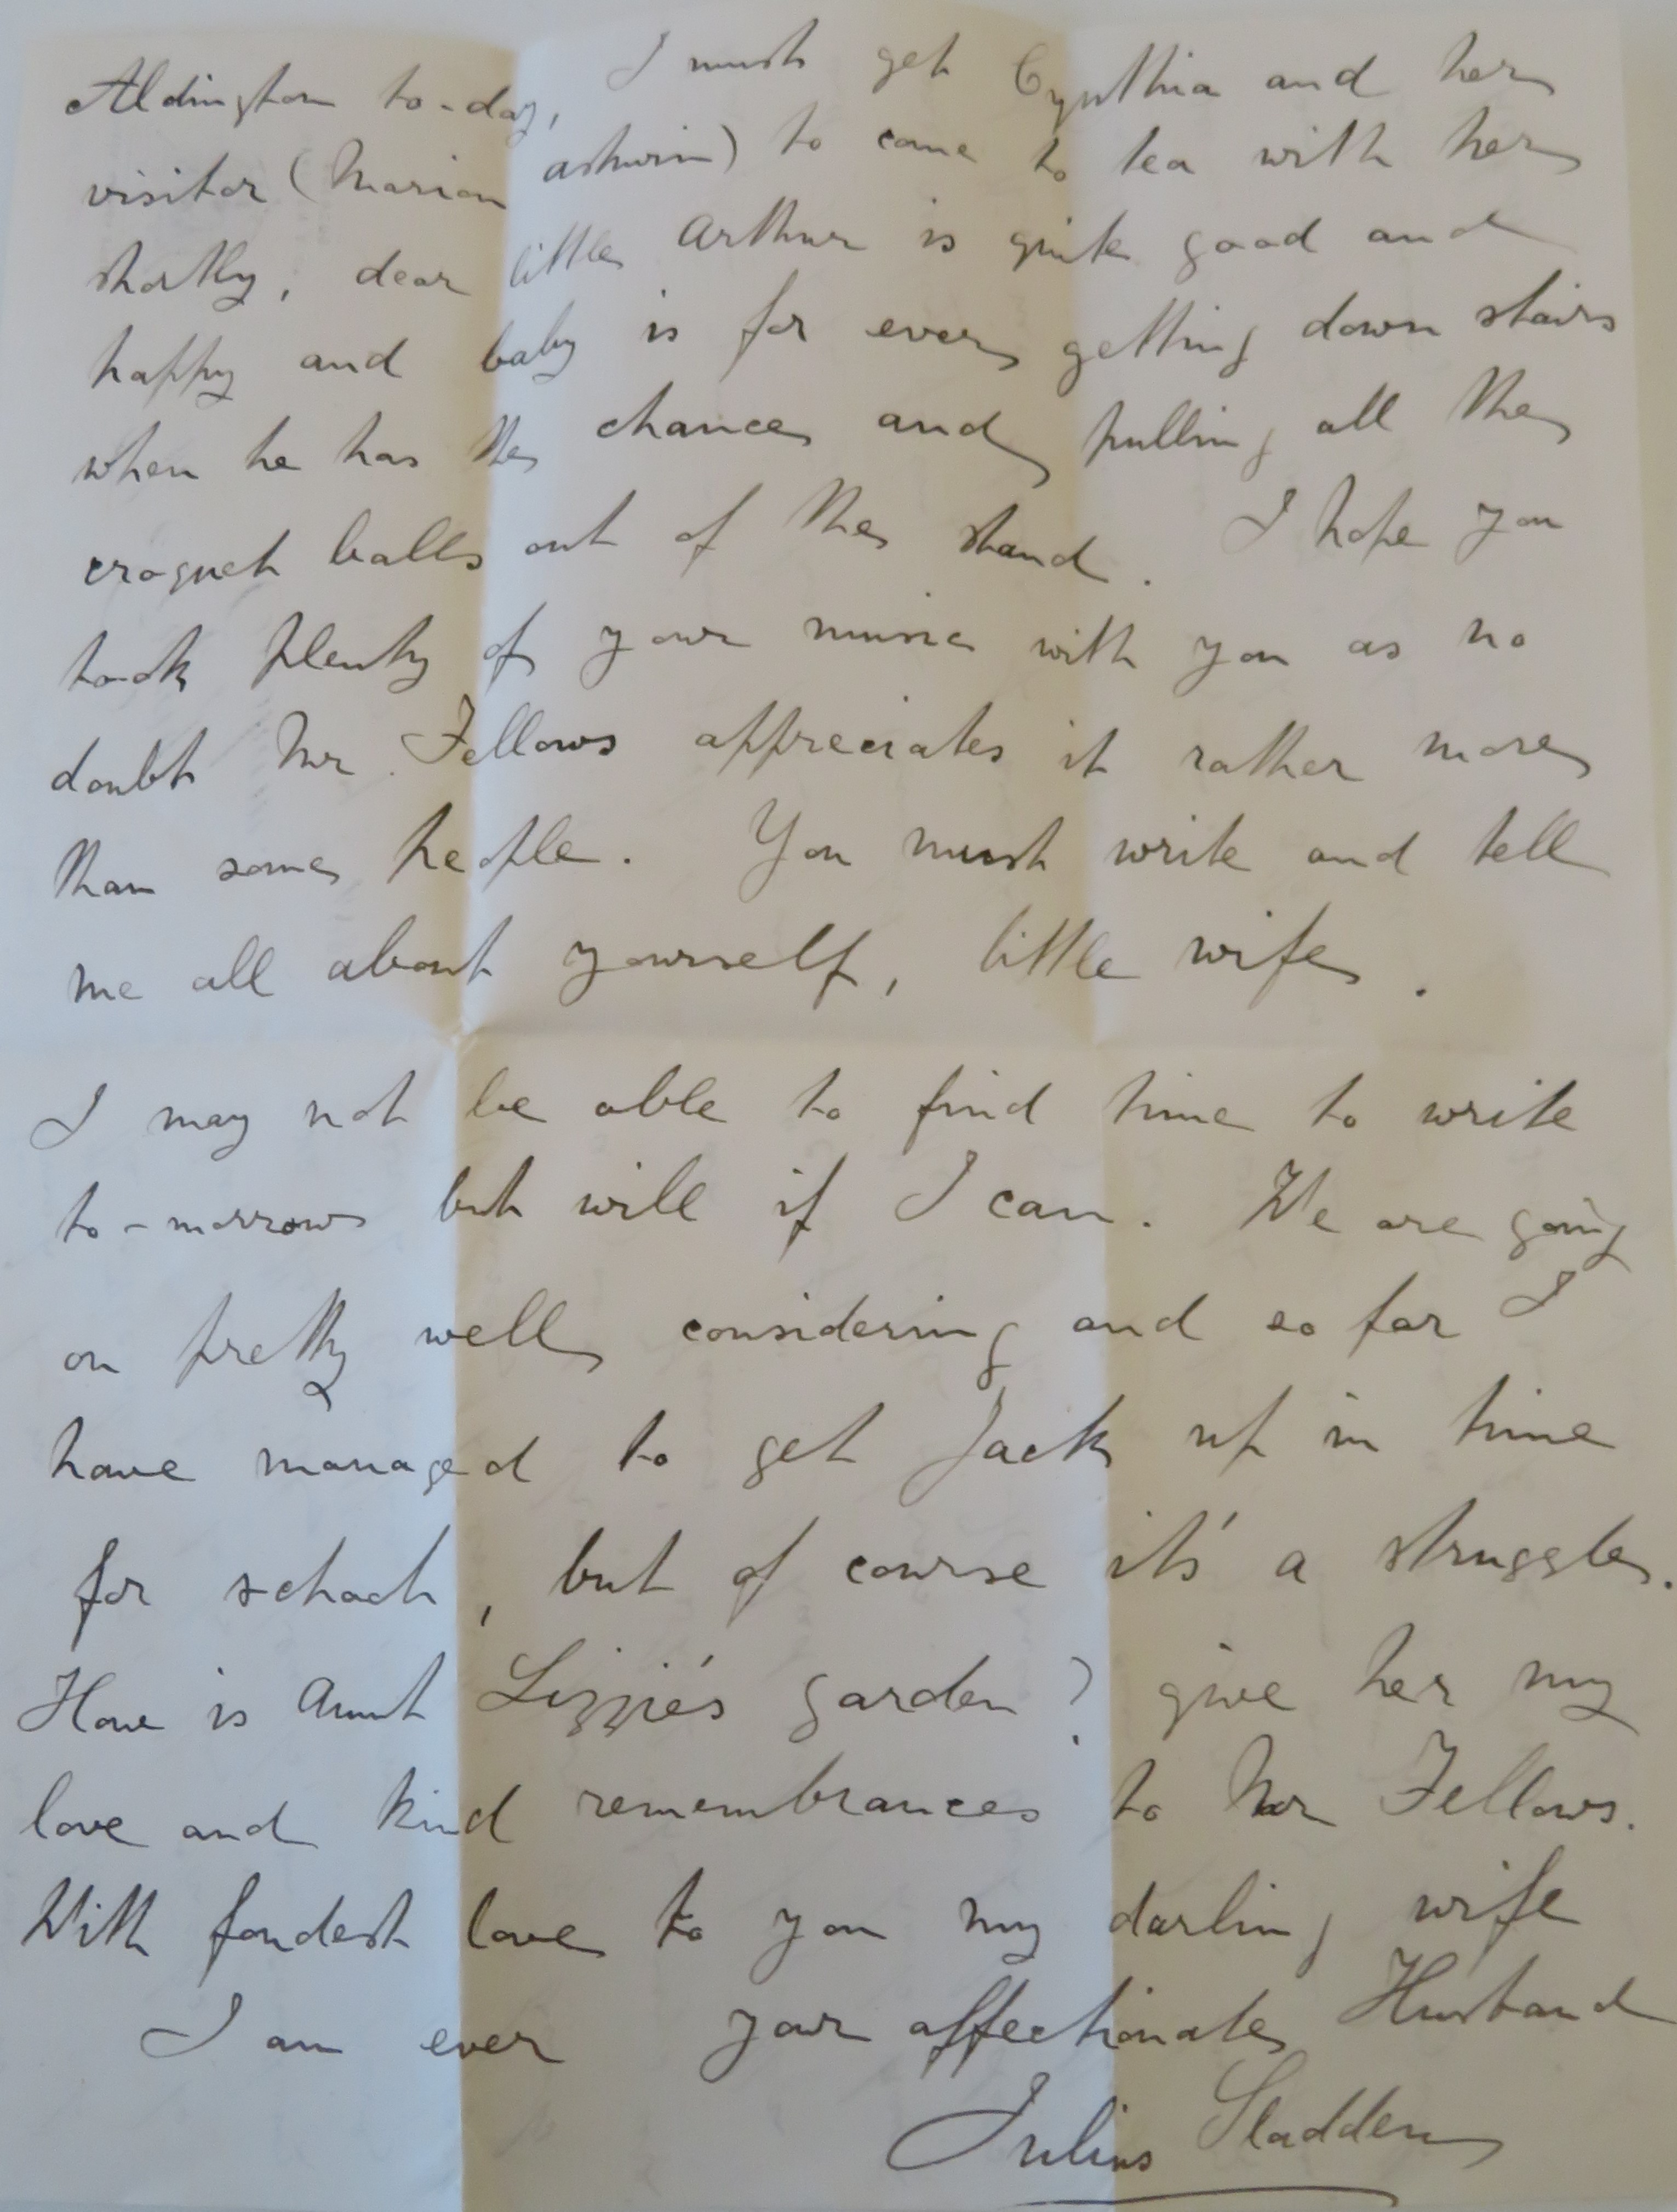 Aldington to-day, I must get Cynthia and her
visitor (Marion Ashwin) to come to tea with her
shortly, dear little Arthur is quite good and
happy and baby is for ever getting down stairs
when he has the chance and pulling all the
croquet balls out of the stand. I hope you
took plenty of your music with you as no
doubt Mr. Fellows appreciates it rather more
than some people. You must write and tell
me all about yourself, little wife.
I may not be able to find time to write
to-morrow but will if I can. We are going
on pretty well considering and so far I
have managed to get Jack up in time
for school, but of course its' a struggle.
How is Aunt Lizzie's garden? give her my
love and kind remembrances to Mr Fellows.
With fondest love to you my darling wife
I am ever your affectionate Husband
Julius Sladden